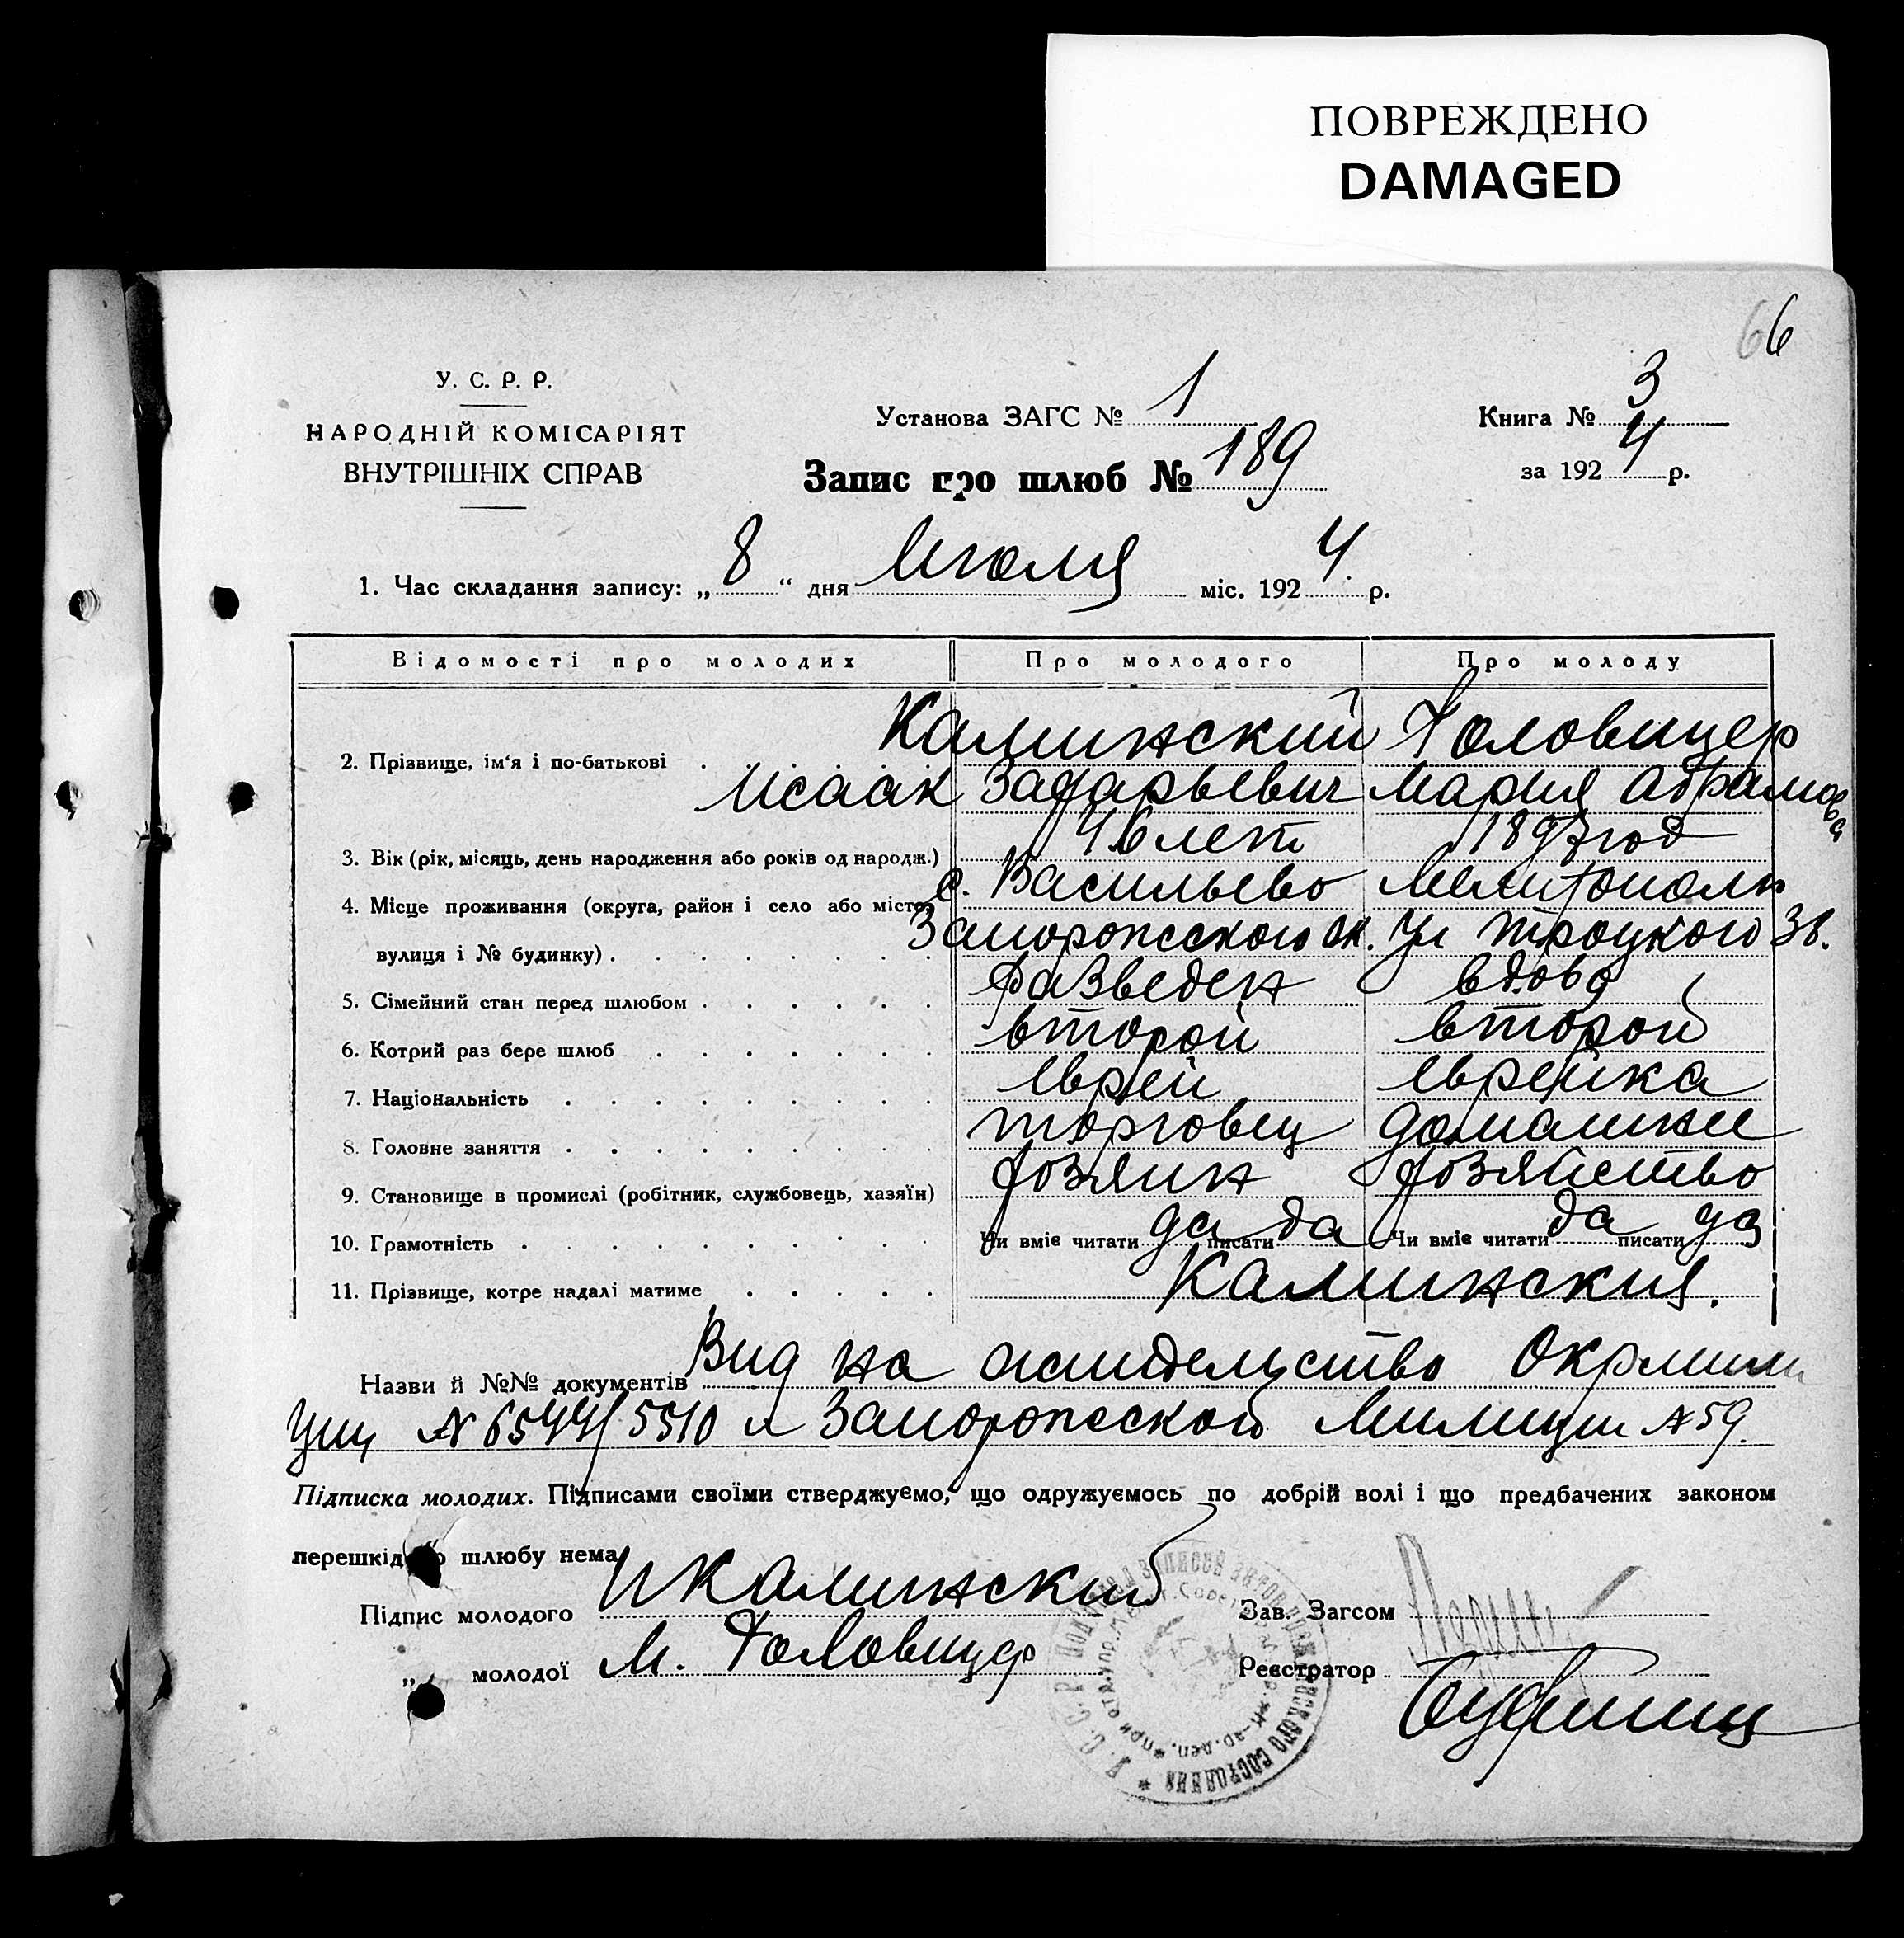 ПОВРЕЖДЕНО
DAMAGED
66
У. С. Р. Р.
НАРОДНІЙ КОМІСАРІЯТ
ВНУТРІШНІХ СПРАВ
Установа ЗАГС № 1
Запис про шлюб № 189
Книга № 3
за 1924 р.
1. Час складання запису: „8“ дня Июля міс. 1924 р.
Відомості про молодих Про молодого Про молоду
2. Прізвище, ім‘я і по-батькові Калинский Головицер
Исаак Захарьевич Мария Абрамовна
3. Вік (рік, місяць, день народження або років од народж.) 46 лет 1897 год
4. Місце проживання (округа, район і село або місто, с. Васильево Мелитополь
вулиця і № будинку) Запорожского ок. Ул Троцкого 38.
5. Сімейний стан перед шлюбом разведен вдова
6. Котрий раз бере шлюб второй второй
7. Національність еврей еврейка
8. Головне заняття торговец домашнее
9. Становище в промислі (робітник, службовець, хазяїн) хозяин хозяйство
10. Грамотність Чи вміє читати да писати да Чи вміє читати да писати да
11. Прізвище, котре надалі матиме Калинския.
Назви й №№ документів Вид на жительство Окрмили
ции № 6544/5510 и Запорожской Милиции № 59.
Підписка молодих. Підписами своїми стверджуємо, що одружуємось по добрій волі і що предбачених законом
перешкід до шлюбу нема
Підпис молодого И Калинский Зав. Загсом
„ молодої М. Головицер Реєстратор